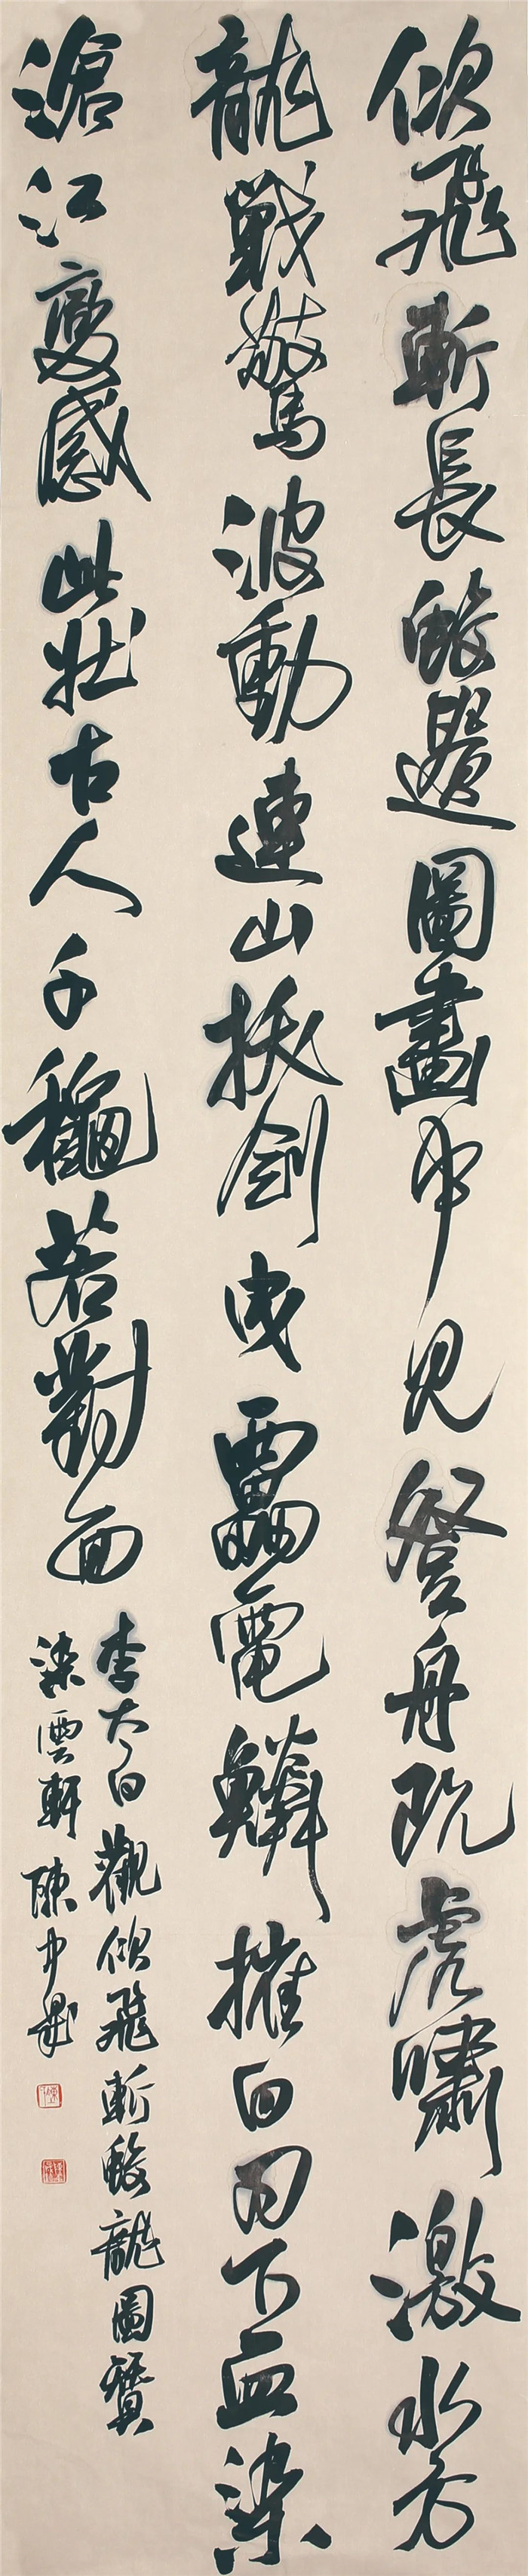 佽飛斬長蛟遺圖畫中見登舟既虎嘯激水方
龍戰驚波動連山拔劍曳靁電鱗摧白刃下血染
滄江變感此壯古人千龝若對面
李太白觀佽飛斬蛟龍圖贊
染雲軒陳中